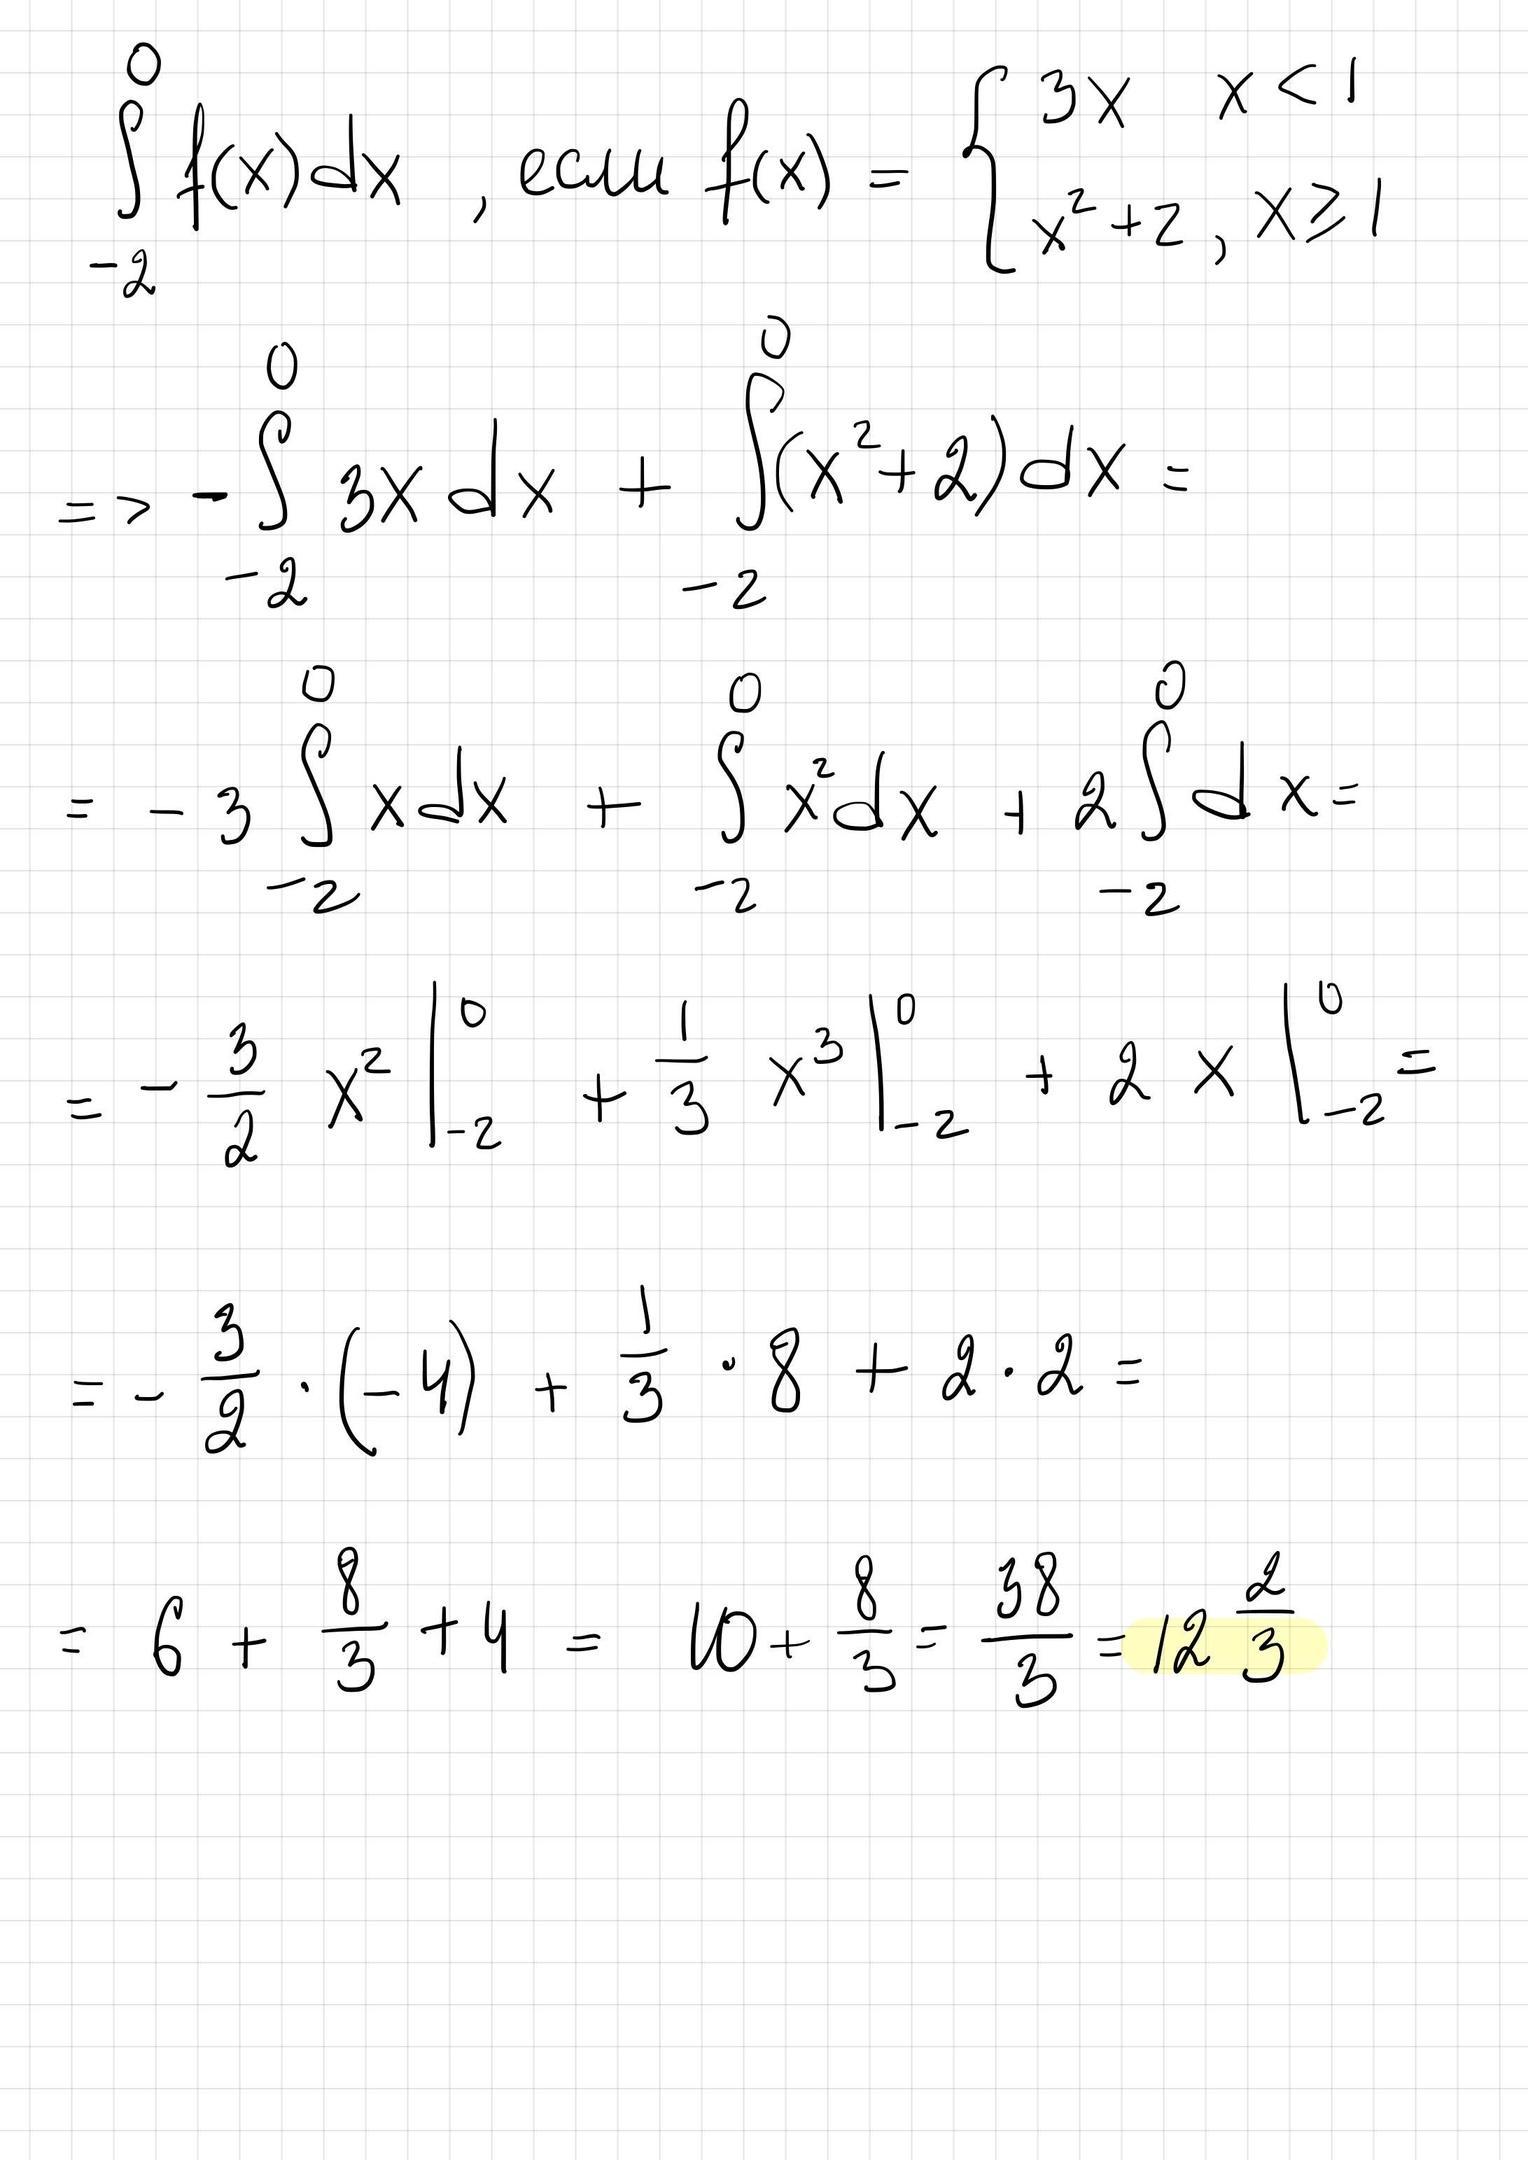 ∫_{-2}^{0} f(x)dx , если f(x) = { 3x x < 1 ; x² + 2, x ≥ 1
=> - ∫_{-2}^{0} 3x dx + ∫_{-2}^{0} (x² + 2) dx =
= - 3 ∫_{-2}^{0} x dx + ∫_{-2}^{0} x² dx + 2 ∫_{-2}^{0} dx =
= - 3/2 x² |_{-2}^{0} + 1/3 x³ |_{-2}^{0} + 2 x |_{-2}^{0} =
= - 3/2 · (-4) + 1/3 · 8 + 2 · 2 =
= 6 + 8/3 + 4 = 10 + 8/3 = 38/3 = 12 2/3